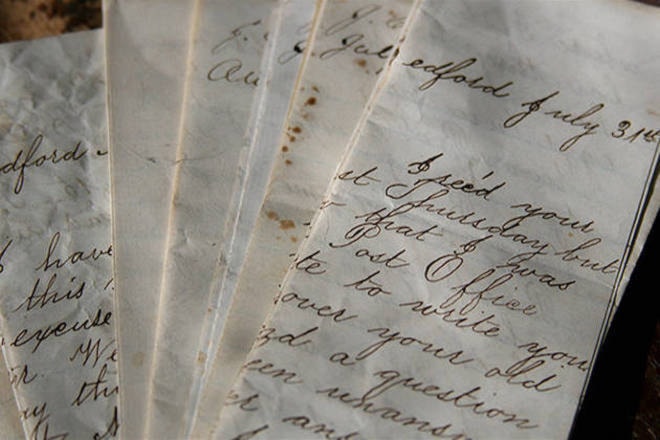 dford
I have
this
excuse
r. We
ay th
J.
Au
J.
J. Jul
edford July 31st
I rec'd your
st Thursday but
that I was
Post Office
te to write you
over your old
d a question
een unans
er an